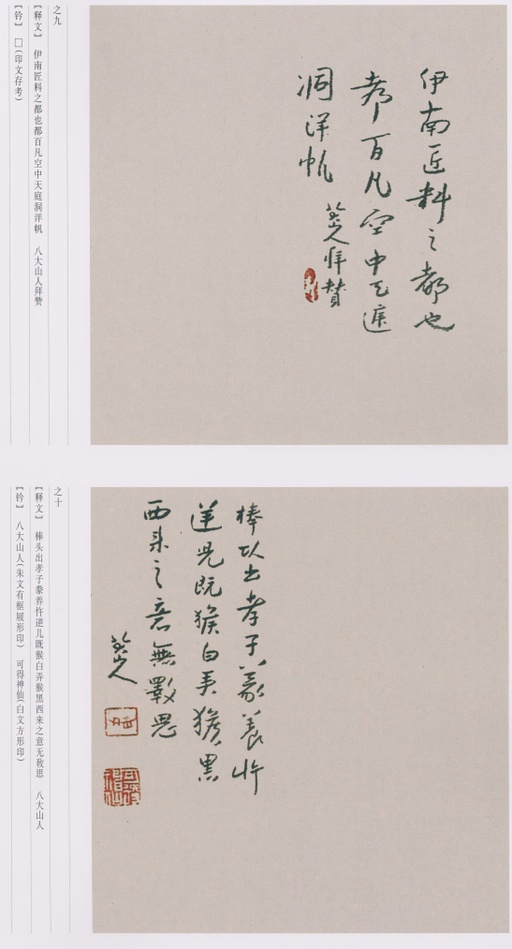 之九
【释文】 伊南匠料之都也都百凡空中天庭洞洋帆 八大山人拜赞
【钤】 □(印文存考)
伊南匠料之都也
都百凡空中天庭
洞洋帆
八大山人拜贊
之十
【释文】 棒头出孝子豢养忤逆儿既猴白弄猴黑西来之意无敌思 八大山人
【钤】 八大山人(朱文有框屐形印) 可得神仙(白文方形印)
棒頭出孝子豢养忤
逆児既猴白弄猴黒
西来之意無斁思
八大山人
可得神仙